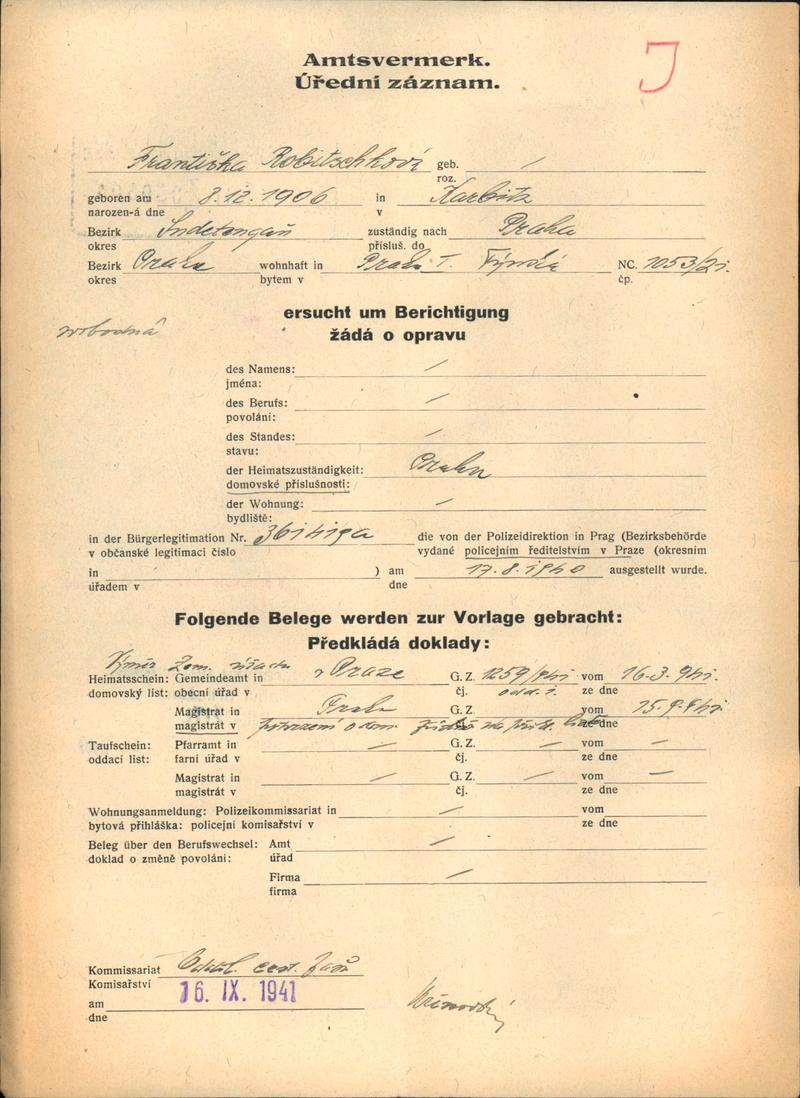 Amtsvermerk.
Úřední záznam.
J
Františka Robitschková geb. /
roz.
geboren am 8.12.1906 in Karbitz
narozen-á dne v
Bezirk zuständig nach Praha
okres přísluš. do
Bezirk Praha wohnhaft in Praha I. Týnská NC. 1053/2i.
okres bytem v čp.
svobodná
ersucht um Berichtigung
žádá o opravu
des Namens: /
jména:
des Berufs: /
povolání:
des Standes: /
stavu:
der Heimatszuständigkeit: Praha
domovské příslušnosti:
der Wohnung: /
bydliště:
in der Bürgerlegitimation Nr. die von der Polizeidirektion in Prag (Bezirksbehörde
v občanské legitimaci číslo vydané policejním ředitelstvím v Praze (okresním
in ) am 17.8.1940 ausgestellt wurde.
úřadem v dne
Folgende Belege werden zur Vorlage gebracht:
Předkládá doklady:
Výměr Zem. úřadu
Heimatsschein: Gemeindeamt in v Praze G. Z. 1259/941 vom 16.3.941.
domovský list: obecní úřad v čj. odd. ze dne
Magistrat in Praha G. Z. vom 15.9.941
magistrát v potvrzení o dom. čj. ze dne
Taufschein: Pfarramt in — G. Z. — vom —
oddací list: farní úřad v čj. ze dne
Magistrat in — G. Z. — vom —
magistrát v čj. ze dne
Wohnungsanmeldung: Polizeikommissariat in — vom
bytová přihláška: policejní komisařství v ze dne
Beleg über den Berufswechsel: Amt —
doklad o změně povolání: úřad
Firma —
firma
Kommissariat
Komisařství
am 16. IX. 1941
dne